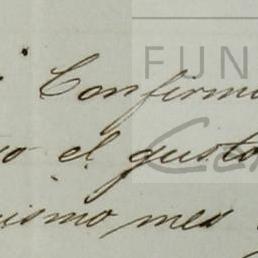 Confirm
el gusto
mismo mes
FUN
Ca